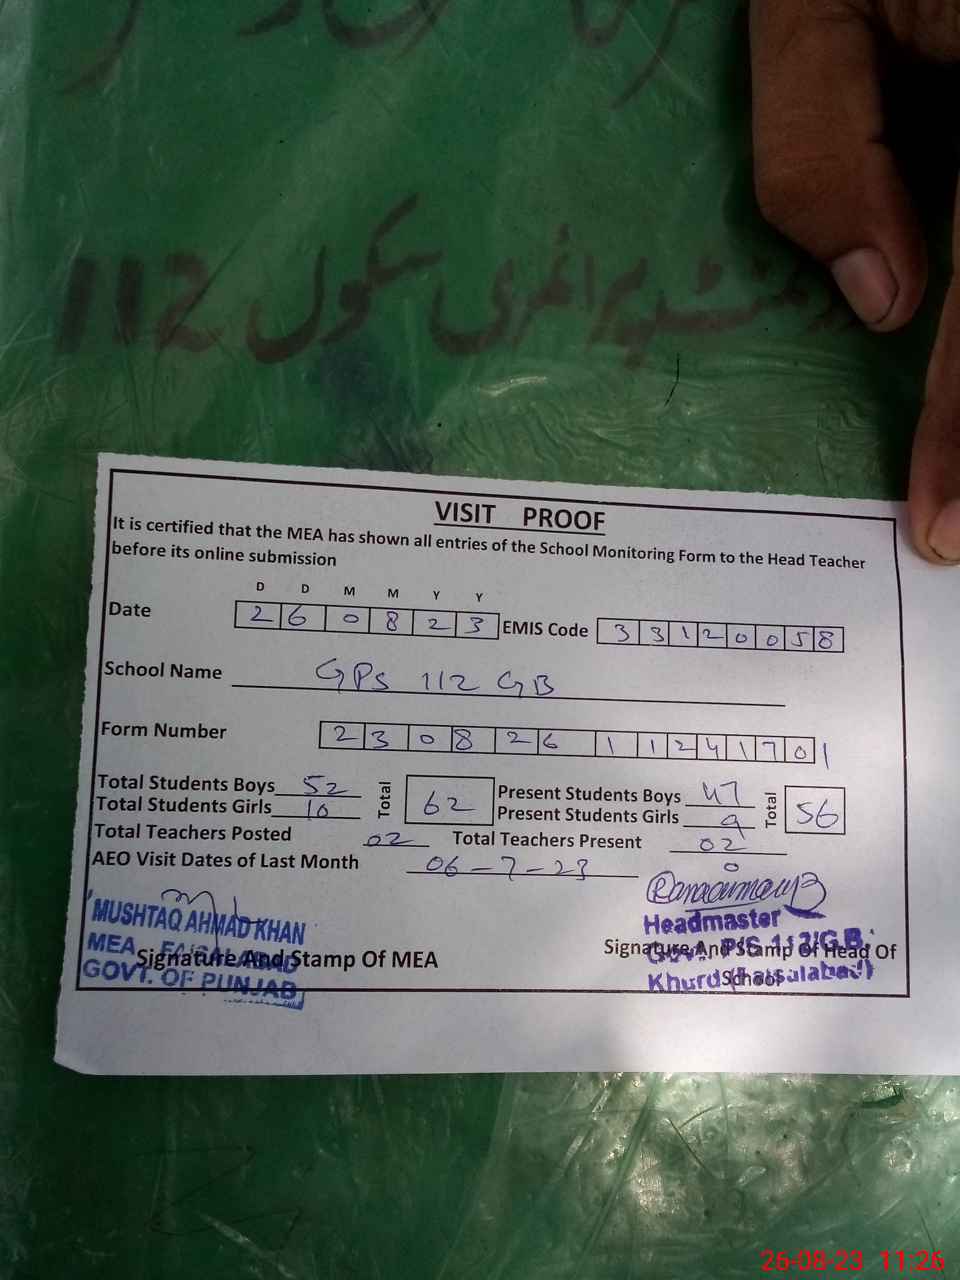 گورنمنٹ پرائمری سکول 112
VISIT PROOF
It is certified that the MEA has shown all entries of the School Monitoring Form to the Head Teacher
before its online submission
D D M M Y Y
Date 26 08 23 EMIS Code 33120058
School Name GPS 112 GB
Form Number 230826 11241701
Total Students Boys 52 Total 62 Present Students Boys 47 Total 56
Total Students Girls 10 Present Students Girls 9
Total Teachers Posted 02 Total Teachers Present 02
AEO Visit Dates of Last Month 06-7-23 0
MUSHTAQ AHMAD KHAN
MEA, FAISALABAD
GOVT. OF PUNJAB
Signature And Stamp Of MEA
Headmaster
Govt. P/S 112/G.B.
Khurd (Faisalabad)
Signature And Stamp Of Head Of
School
26-08-23 11:26